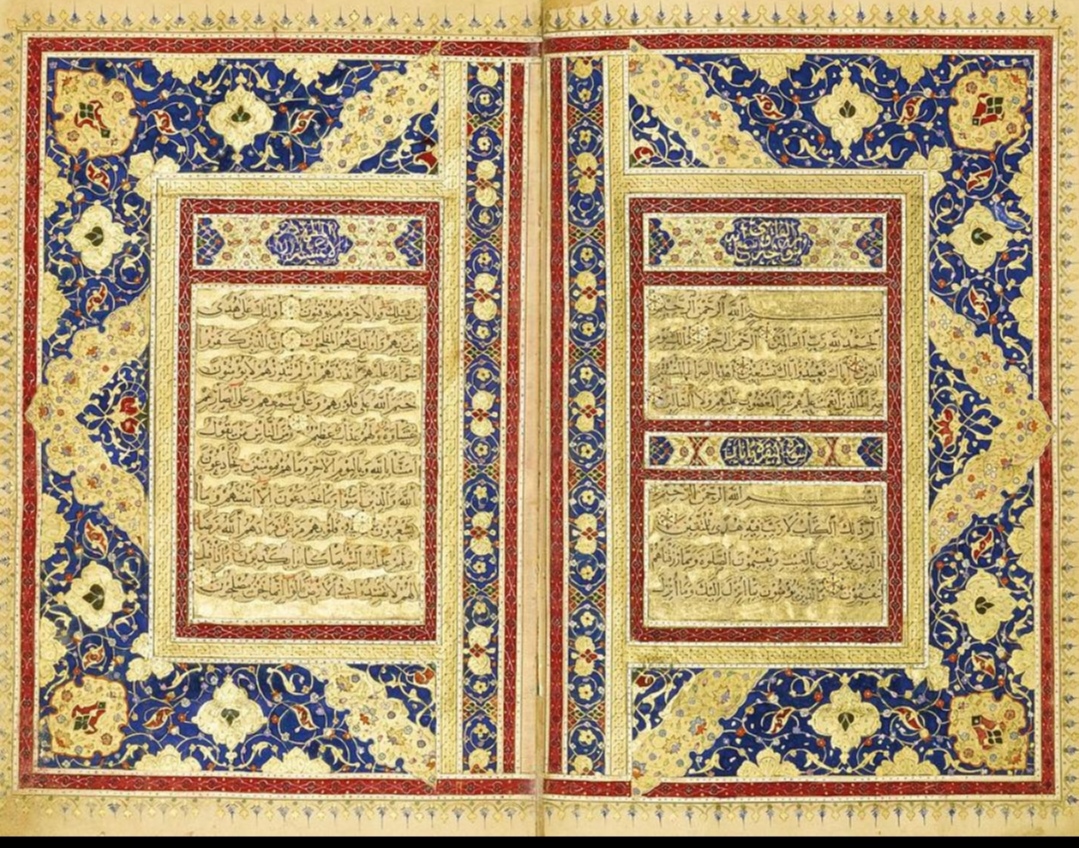 بسم الله الرحمن الرحيم
الحمد لله رب العالمين الرحمن الرحيم مالك يوم
الدين اياك نعبد واياك نستعين اهدنا الصراط المستقيم
صراط الذين انعمت عليهم غير المغضوب عليهم ولا الضالين
سورة البقرة
بسم الله الرحمن الرحيم
الم ذلك الكتاب لا ريب فيه هدى للمتقين
الذين يؤمنون بالغيب ويقيمون الصلوة ومما رزقناهم
ينفقون والذين يؤمنون بما انزل اليك وما انزل
من قبلك وبالاخرة هم يوقنون اولئك على هدى
من ربهم واولئك هم المفلحون ان الذين كفروا
سواء عليهم ءانذرتهم ام لم تنذرهم لا يؤمنون
ختم الله على قلوبهم وعلى سمعهم وعلى ابصارهم
غشاوة ولهم عذاب عظيم ومن الناس من يقول
آمنا بالله وباليوم الآخر وما هم بمؤمنين يخادعون
الله والذين آمنوا وما يخدعون الا انفسهم وما
يشعرون في قلوبهم مرض فزادهم الله مرضا
ولهم عذاب اليم بما كانوا يكذبون واذا قيل
لهم لا تفسدوا في الارض قالوا انما نحن مصلحون